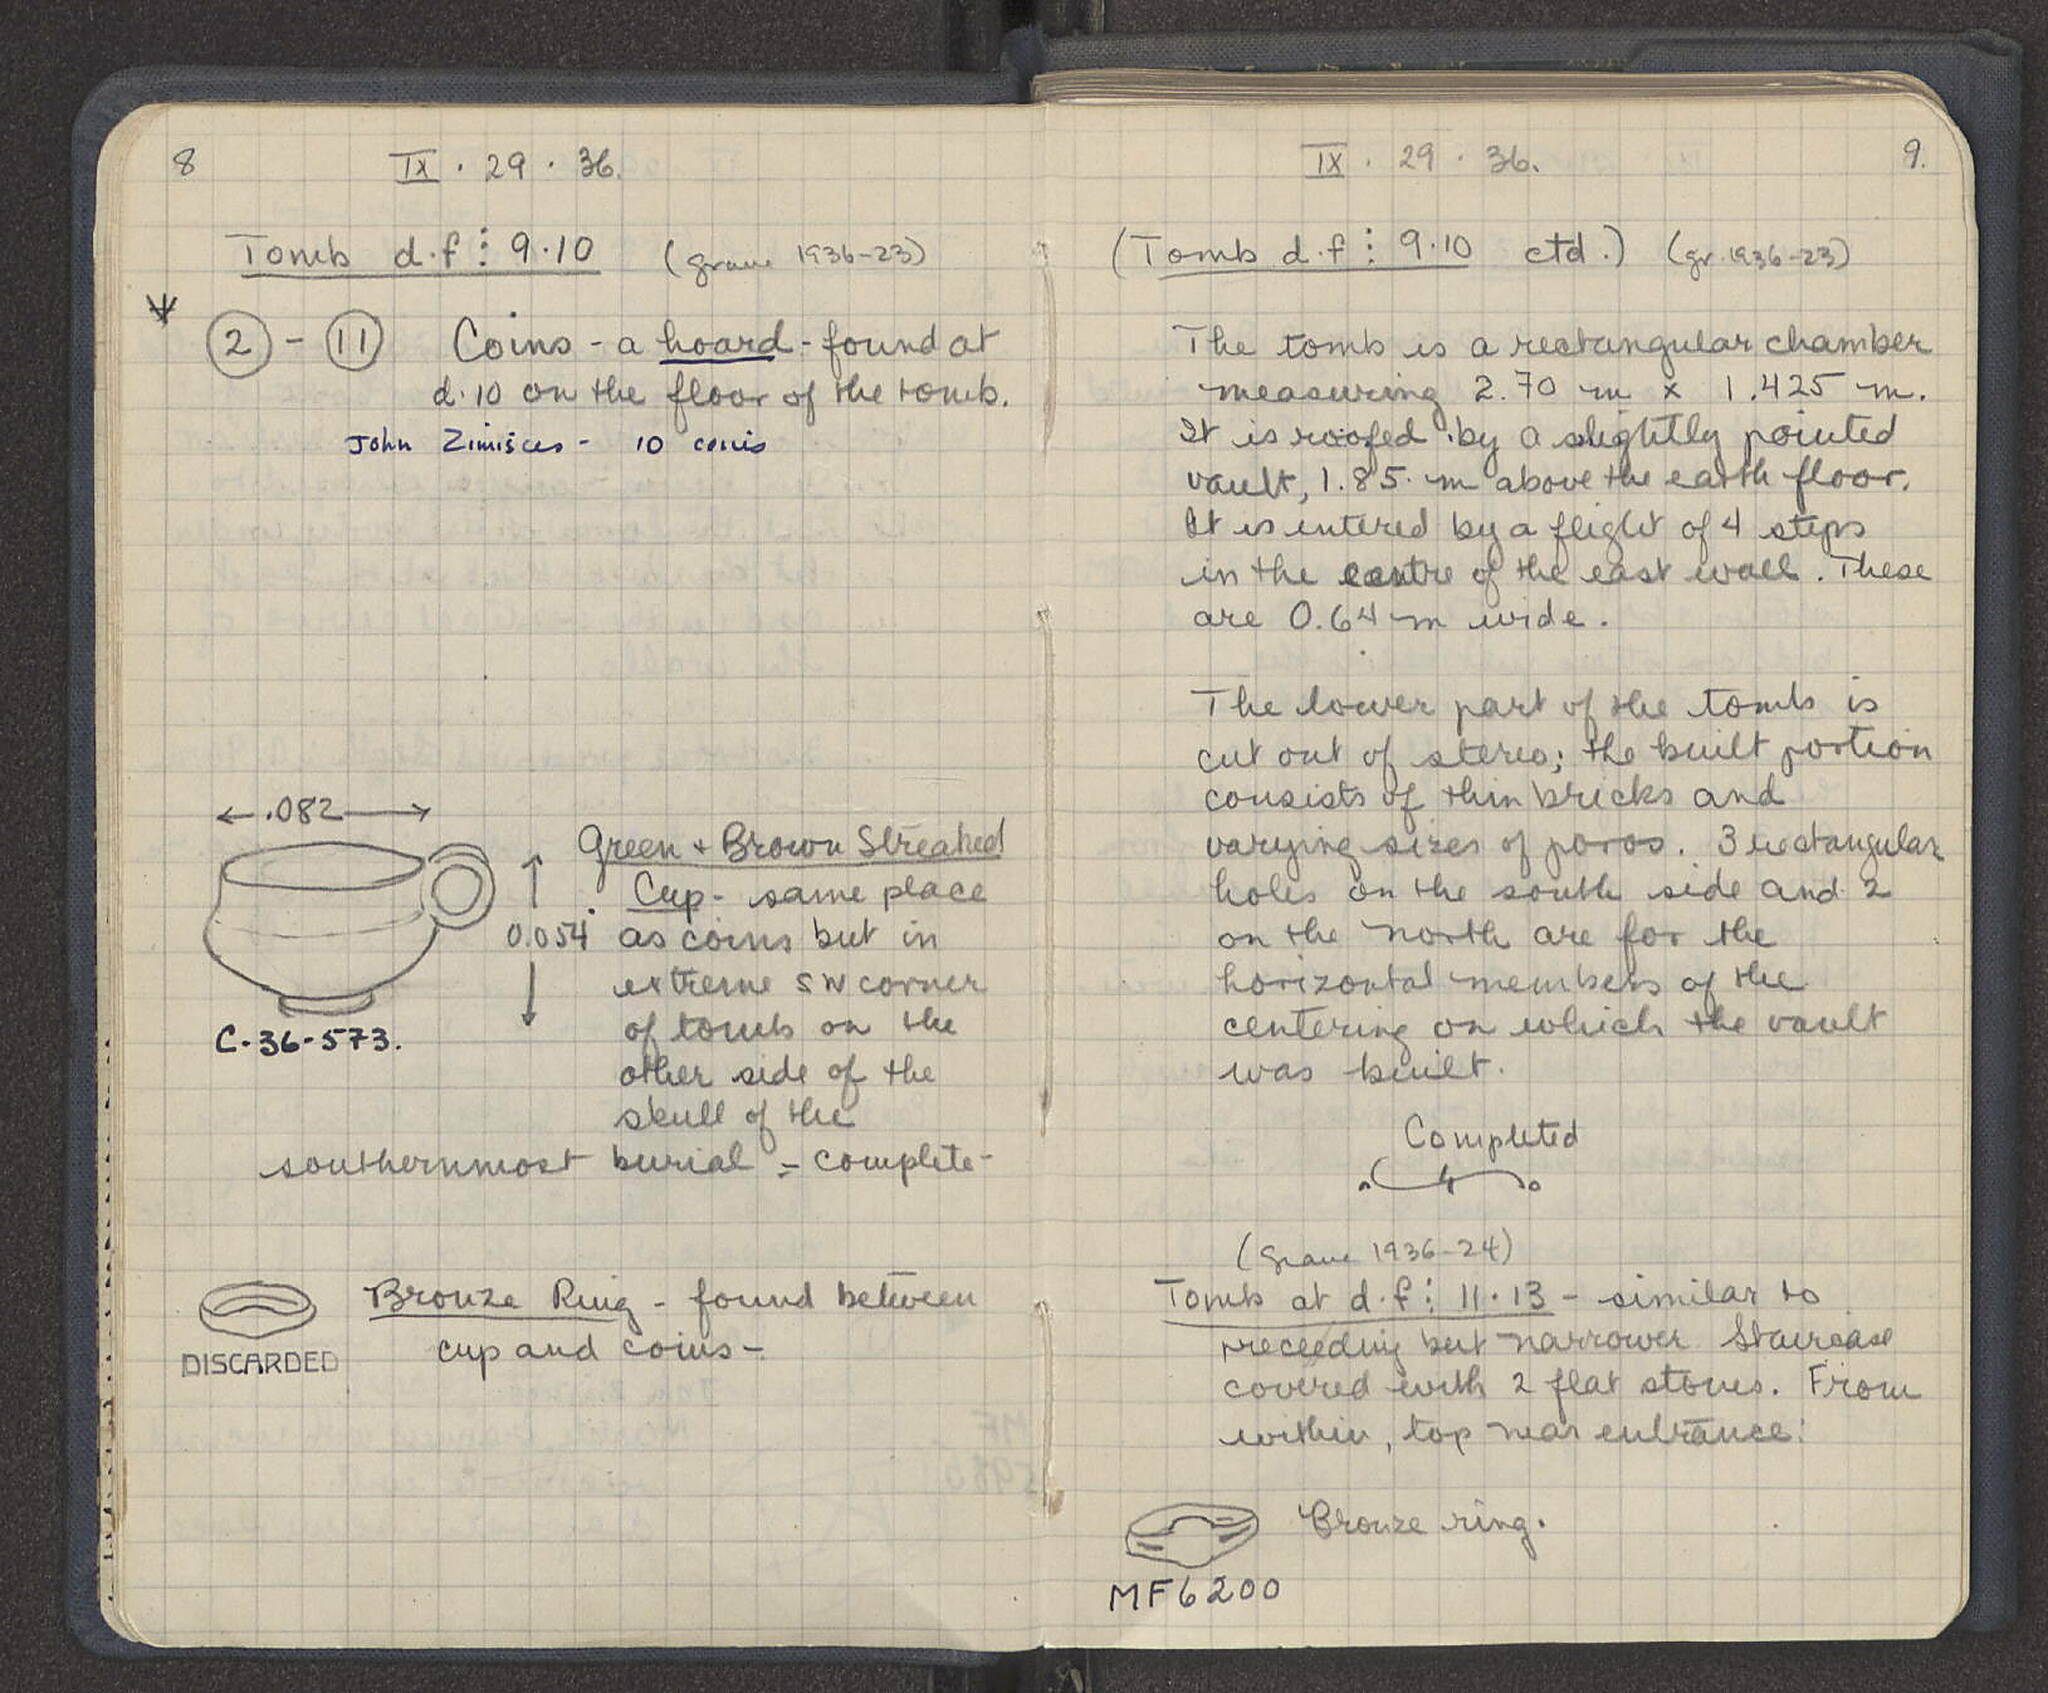 8
IX · 29 · 36.
Tomb d.f ⋮ 9.10 (grave 1936-23)
2 - 11 Coins - a hoard - found at
d.10 on the floor of the tomb.
John Zimisces - 10 coins
← .082 →
Green + Brown Streaked
Cup - same place
0.054 as coins but in
extreme SW corner
of tomb on the
C-36-573.
other side of the
skull of the
southernmost burial - complete -
Bronze Ring - found between
cup and coins -
DISCARDED
IX · 29 · 36.
9.
(Tomb d.f ⋮ 9.10 ctd.) (gr. 1936-23)
The tomb is a rectangular chamber
measuring 2.70 m x 1.425 m.
It is roofed by a slightly pointed
vault, 1.85 m above the earth floor.
It is entered by a flight of 4 steps
in the centre of the east wall. These
are 0.64 m wide.
The lower part of the tomb is
cut out of stereo; the built portion
consists of thin bricks and
varying sizes of poros. 3 rectangular
holes on the south side and 2
on the north are for the
horizontal members of the
centering on which the vault
was built.
Completed
(grave 1936-24)
Tomb at d.f ⋮ 11.13 - similar to
preceeding but narrower. Staircase
covered with 2 flat stones. From
within, top near entrance:
Bronze ring.
MF6200